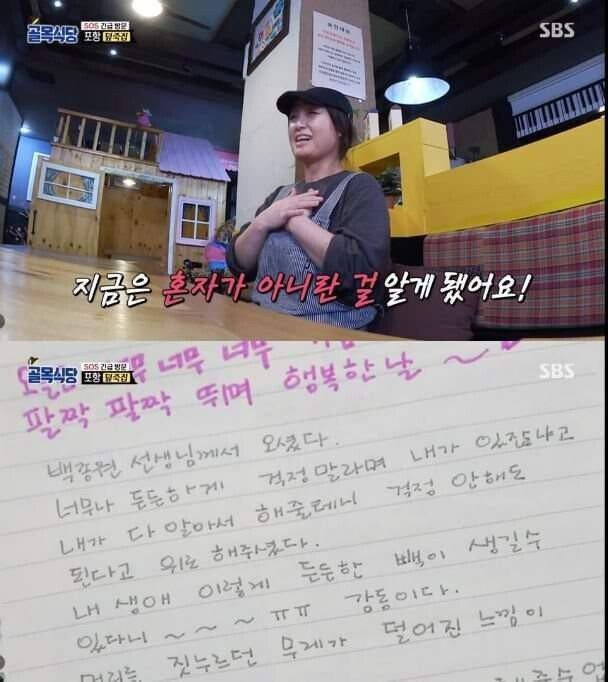 골목식당
SOS 긴급 방문
포항 덮죽집
SBS
지금은 혼자가 아니란 걸 알게 됐어요!
골목식당
SOS 긴급 방문
포항 덮죽집
SBS
너무 너무 너무
팔짝 팔짝 뛰며 행복한 날 ~
백종원 선생님께서 오셨다.
너무나 든든하게 걱정말라며 내가 있잖냐고
내가 다 알아서 해줄테니 걱정 안해도
된다고 위로 해주셨다.
내 생애 이렇게 든든한 빽이 생길수
있다니 ~ ~ ~ ㅠㅠ 감동이다.
머리를 짓누르던 무게가 덜어진 느낌이